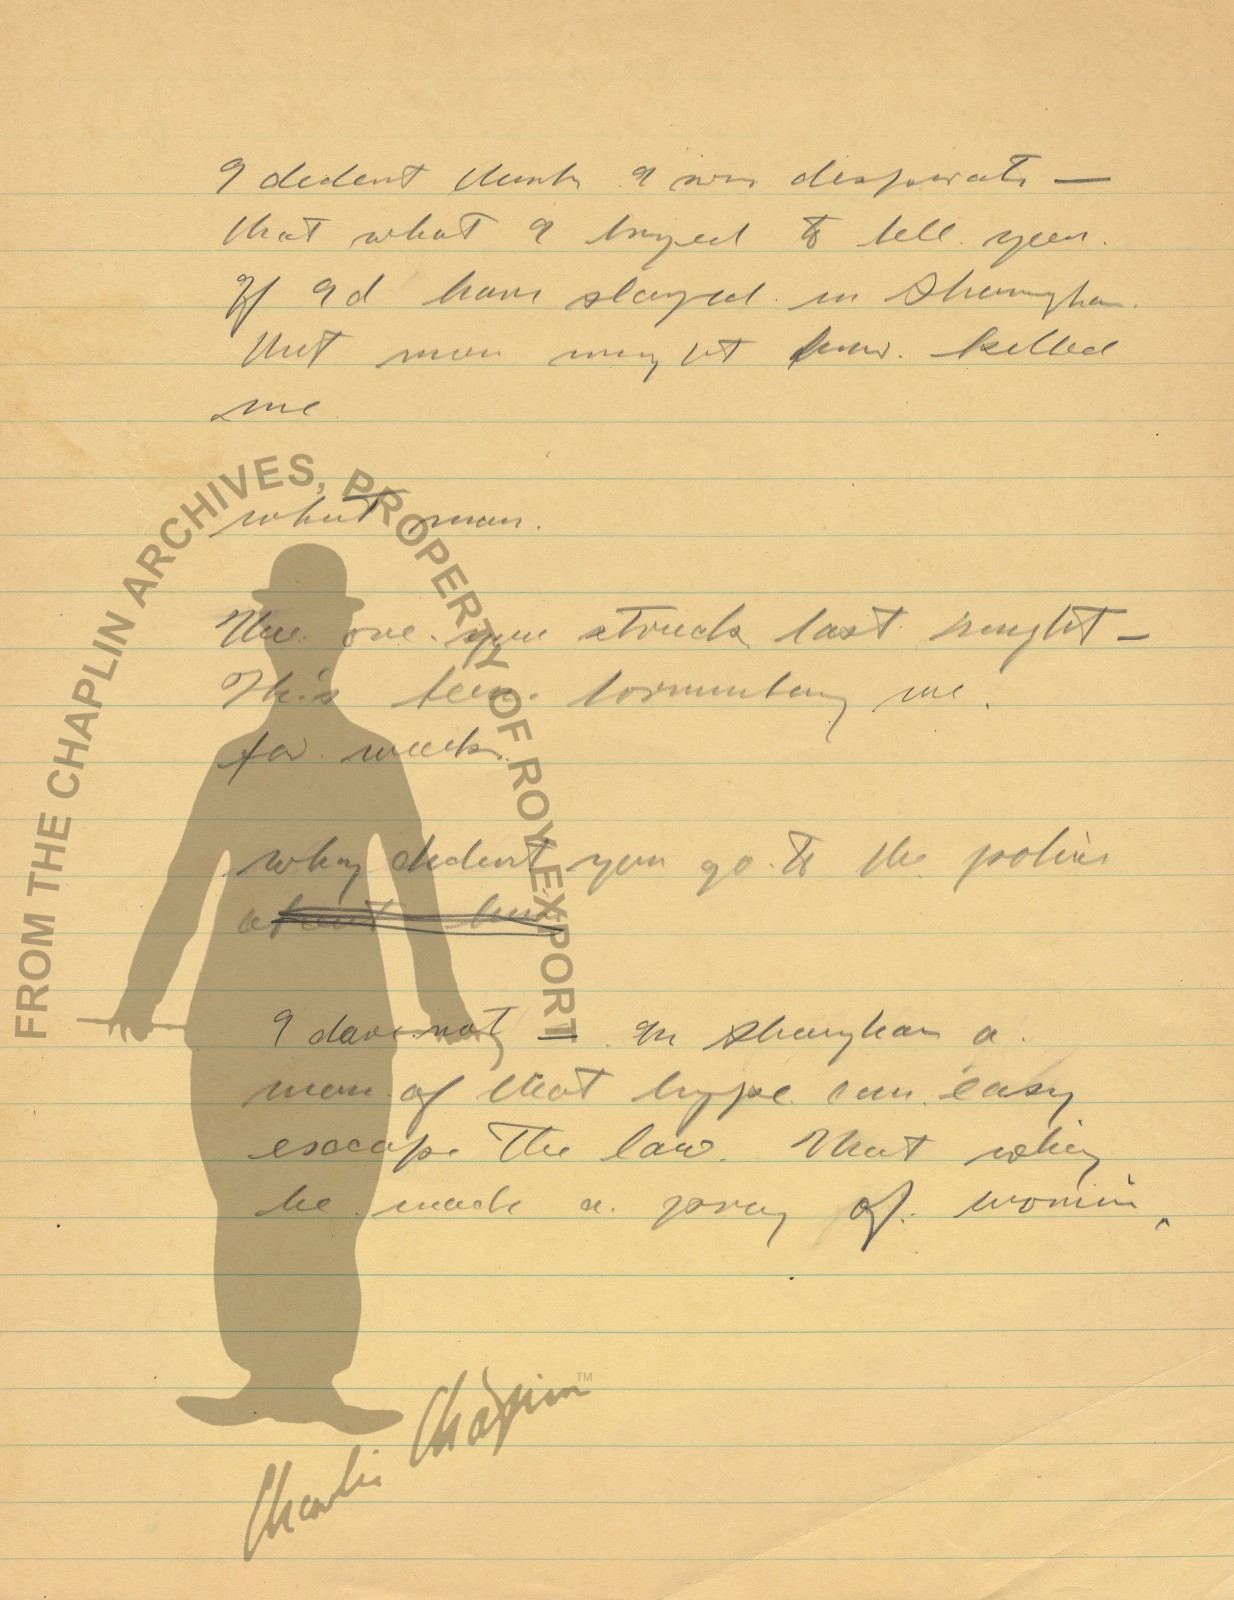 I dident think I was desperate —
that what I tryed to tell you.
If I'd have stayed in Shanghai
that man might have killed
me
what man.
The one you struck last night —
He's been tormenting me.
for weeks.
why dident you go to the police
about him
I dare not — In Shanghai a
man of that type can easy
escape the law. That why
he made a pray of women,
FROM THE CHAPLIN ARCHIVES, PROPERTY OF ROY EXPORT
Charlie Chaplin™